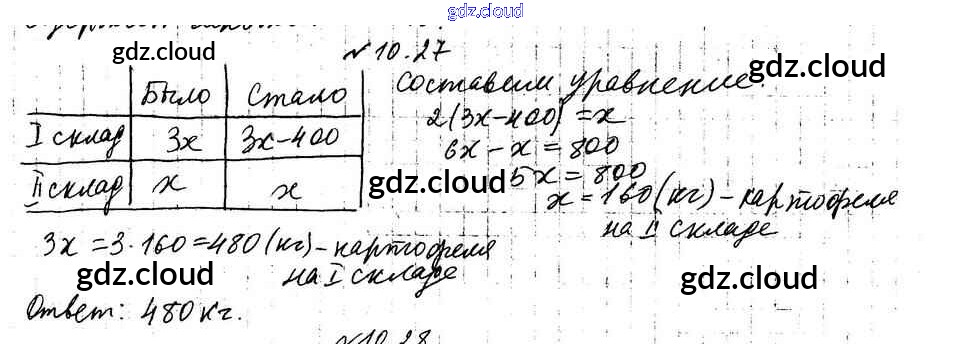 gdz.cloud
gdz.cloud
№ 10.27
Было Стало
I склад 3х 3х-400
II склад х х
Составим уравнение:
gdz.cloud
2(3х-400)=х
6х-х=800
5х=800
gdz.cloud
х=160(кг)-картофеля
на II складе
3х=3·160=480(кг)-картофеля
на I складе
gdz.cloud
gdz.cloud
gdz.cloud
Ответ: 480кг.
№10.28